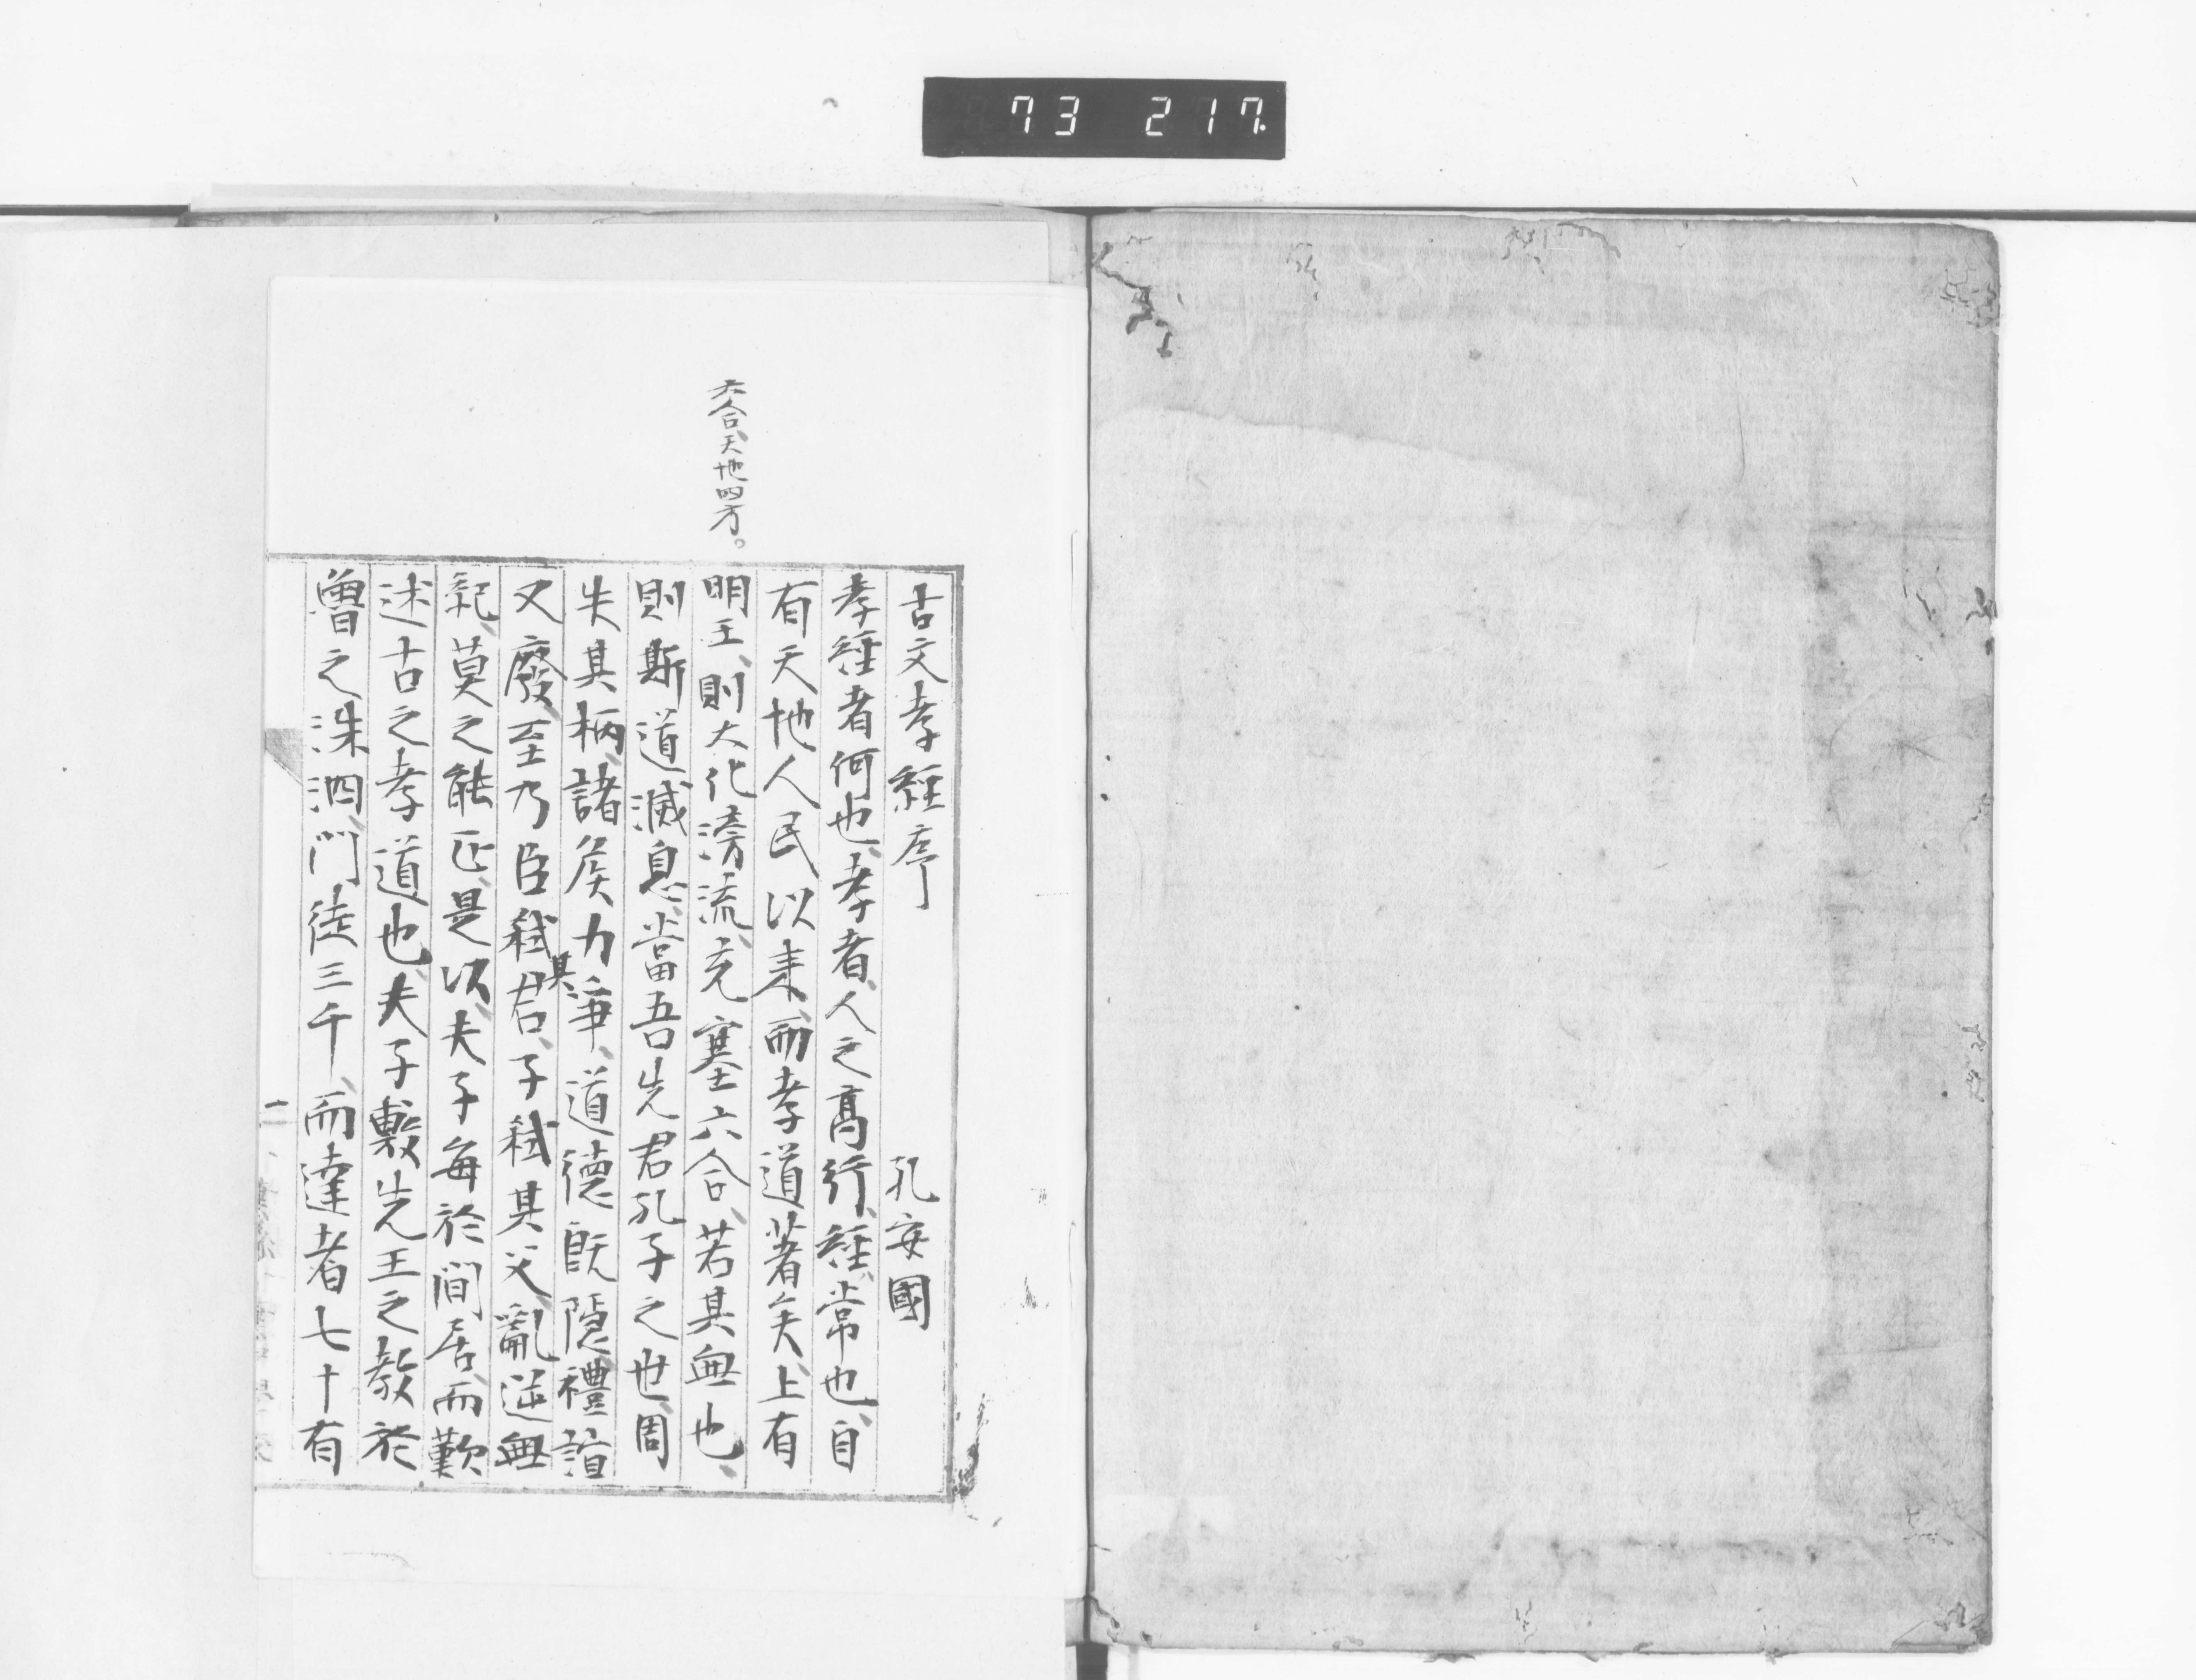 73 217.
六合、天地四方。
古文孝經序 孔安國
孝經者何也、孝者、人之高行、經、常也、自
有天地人民以來、而孝道著矣、上有
明王、則大化滂流、充塞六合、若其無也、
則斯道滅息、當吾先君孔子之世、周
失其柄、諸侯力爭、道德既隱、禮誼
又廢、至乃臣弑其君、子弑其父、亂逆無
紀、莫之能正、是以、夫子每於閒居、而歎
述古之孝道也、夫子敷先王之教於
魯之洙泗、門徒三千、而達者七十有
二